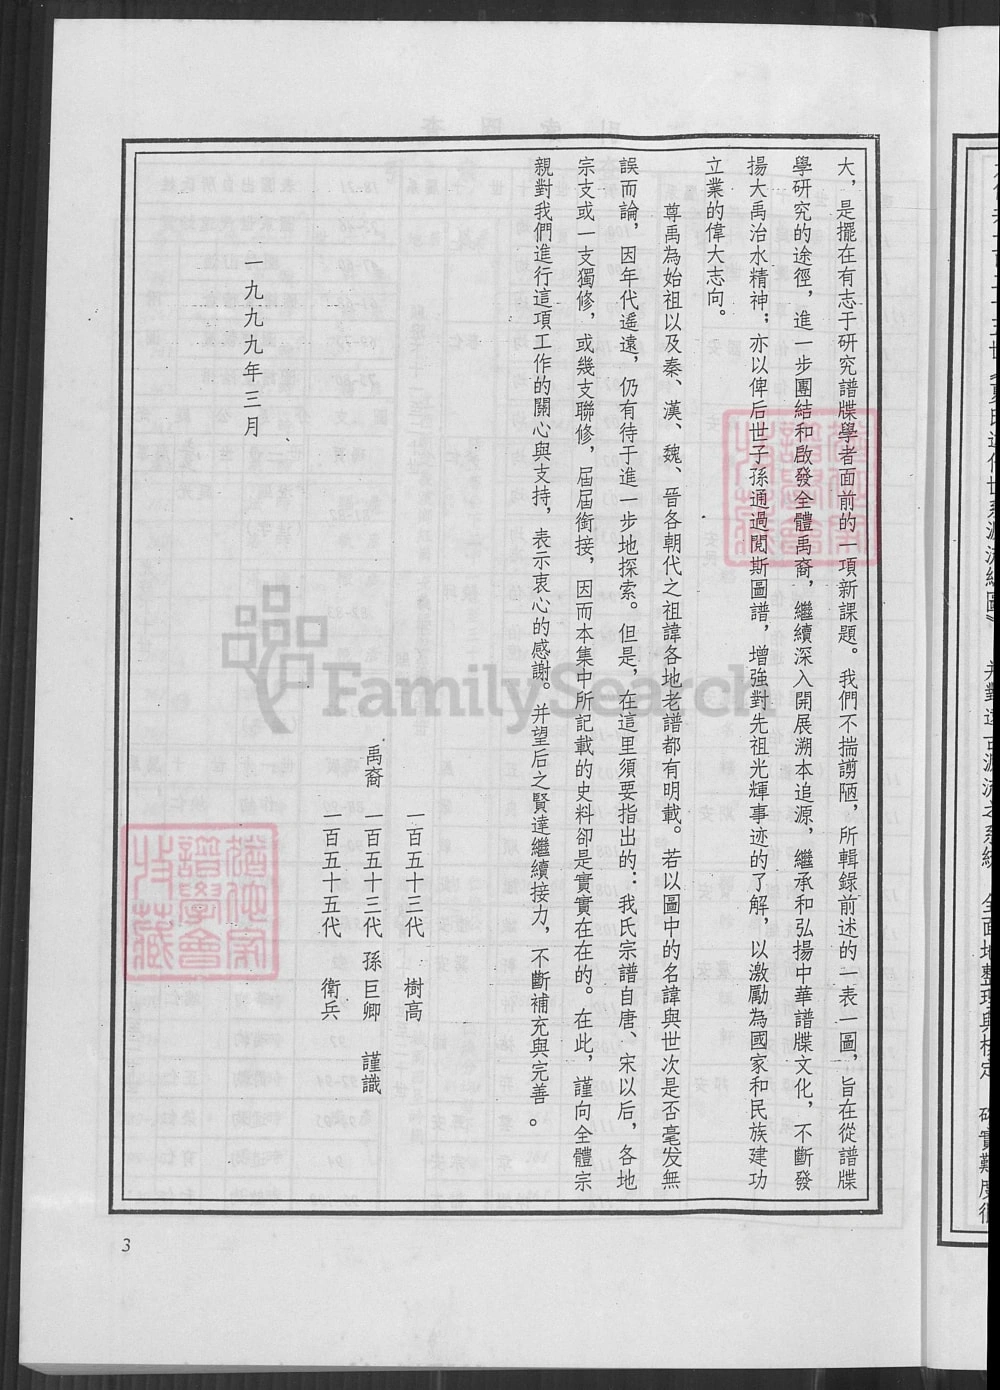 大，是擺在有志于研究譜牒學者面前的一項新課題。我們不揣謭陋，所輯錄前述的一表一圖，旨在從譜牒
學研究的途徑，進一步團結和啟發全體禹裔，繼續深入開展溯本追源，繼承和弘揚中華譜牒文化，不斷發
揚大禹治水精神；亦以俾后世子孫通過閱斯圖譜，增強對先祖光輝事迹的了解，以激勵為國家和民族建功
立業的偉大志向。
尊禹為始祖以及秦、漢、魏、晉各朝代之祖諱各地老譜都有明載。若以圖中的名諱與世次是否毫发無
誤而論，因年代遙遠，仍有待于進一步地探索。但是，在這里須要指出的：我氏宗譜自唐、宋以后，各地
宗支或一支獨修，或幾支聯修，屆屆銜接，因而本集中所記載的史料卻是實實在在的。在此，謹向全體宗
親對我們進行這項工作的關心與支持，表示衷心的感謝。并望后之賢達繼續接力，不斷補充與完善。
一百五十三代 樹高
禹裔 一百五十三代 孫 巨卿 謹識
一百五十五代 衛兵
一九九九年三月
3
FamilySearch